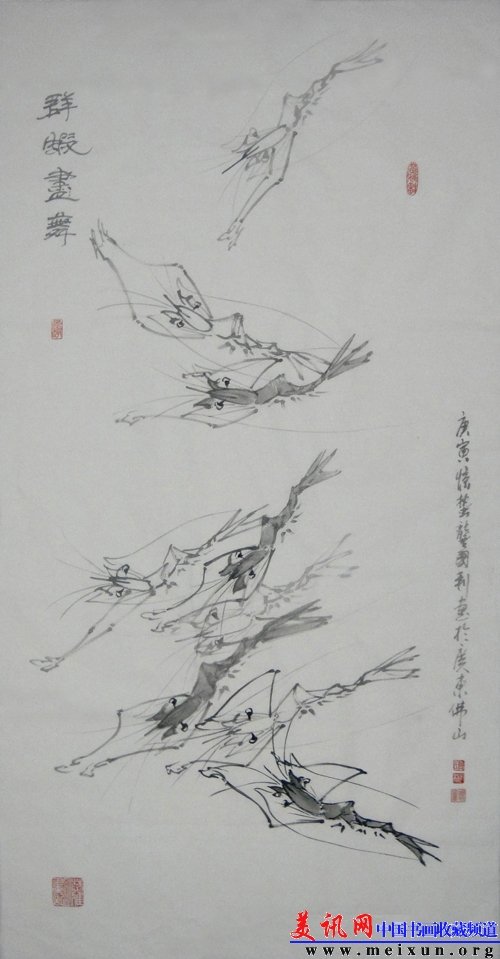 群蝦畫舞
庚寅龔國利於廣東佛山
美讯网 中国书画收藏频道
www.meixun.org